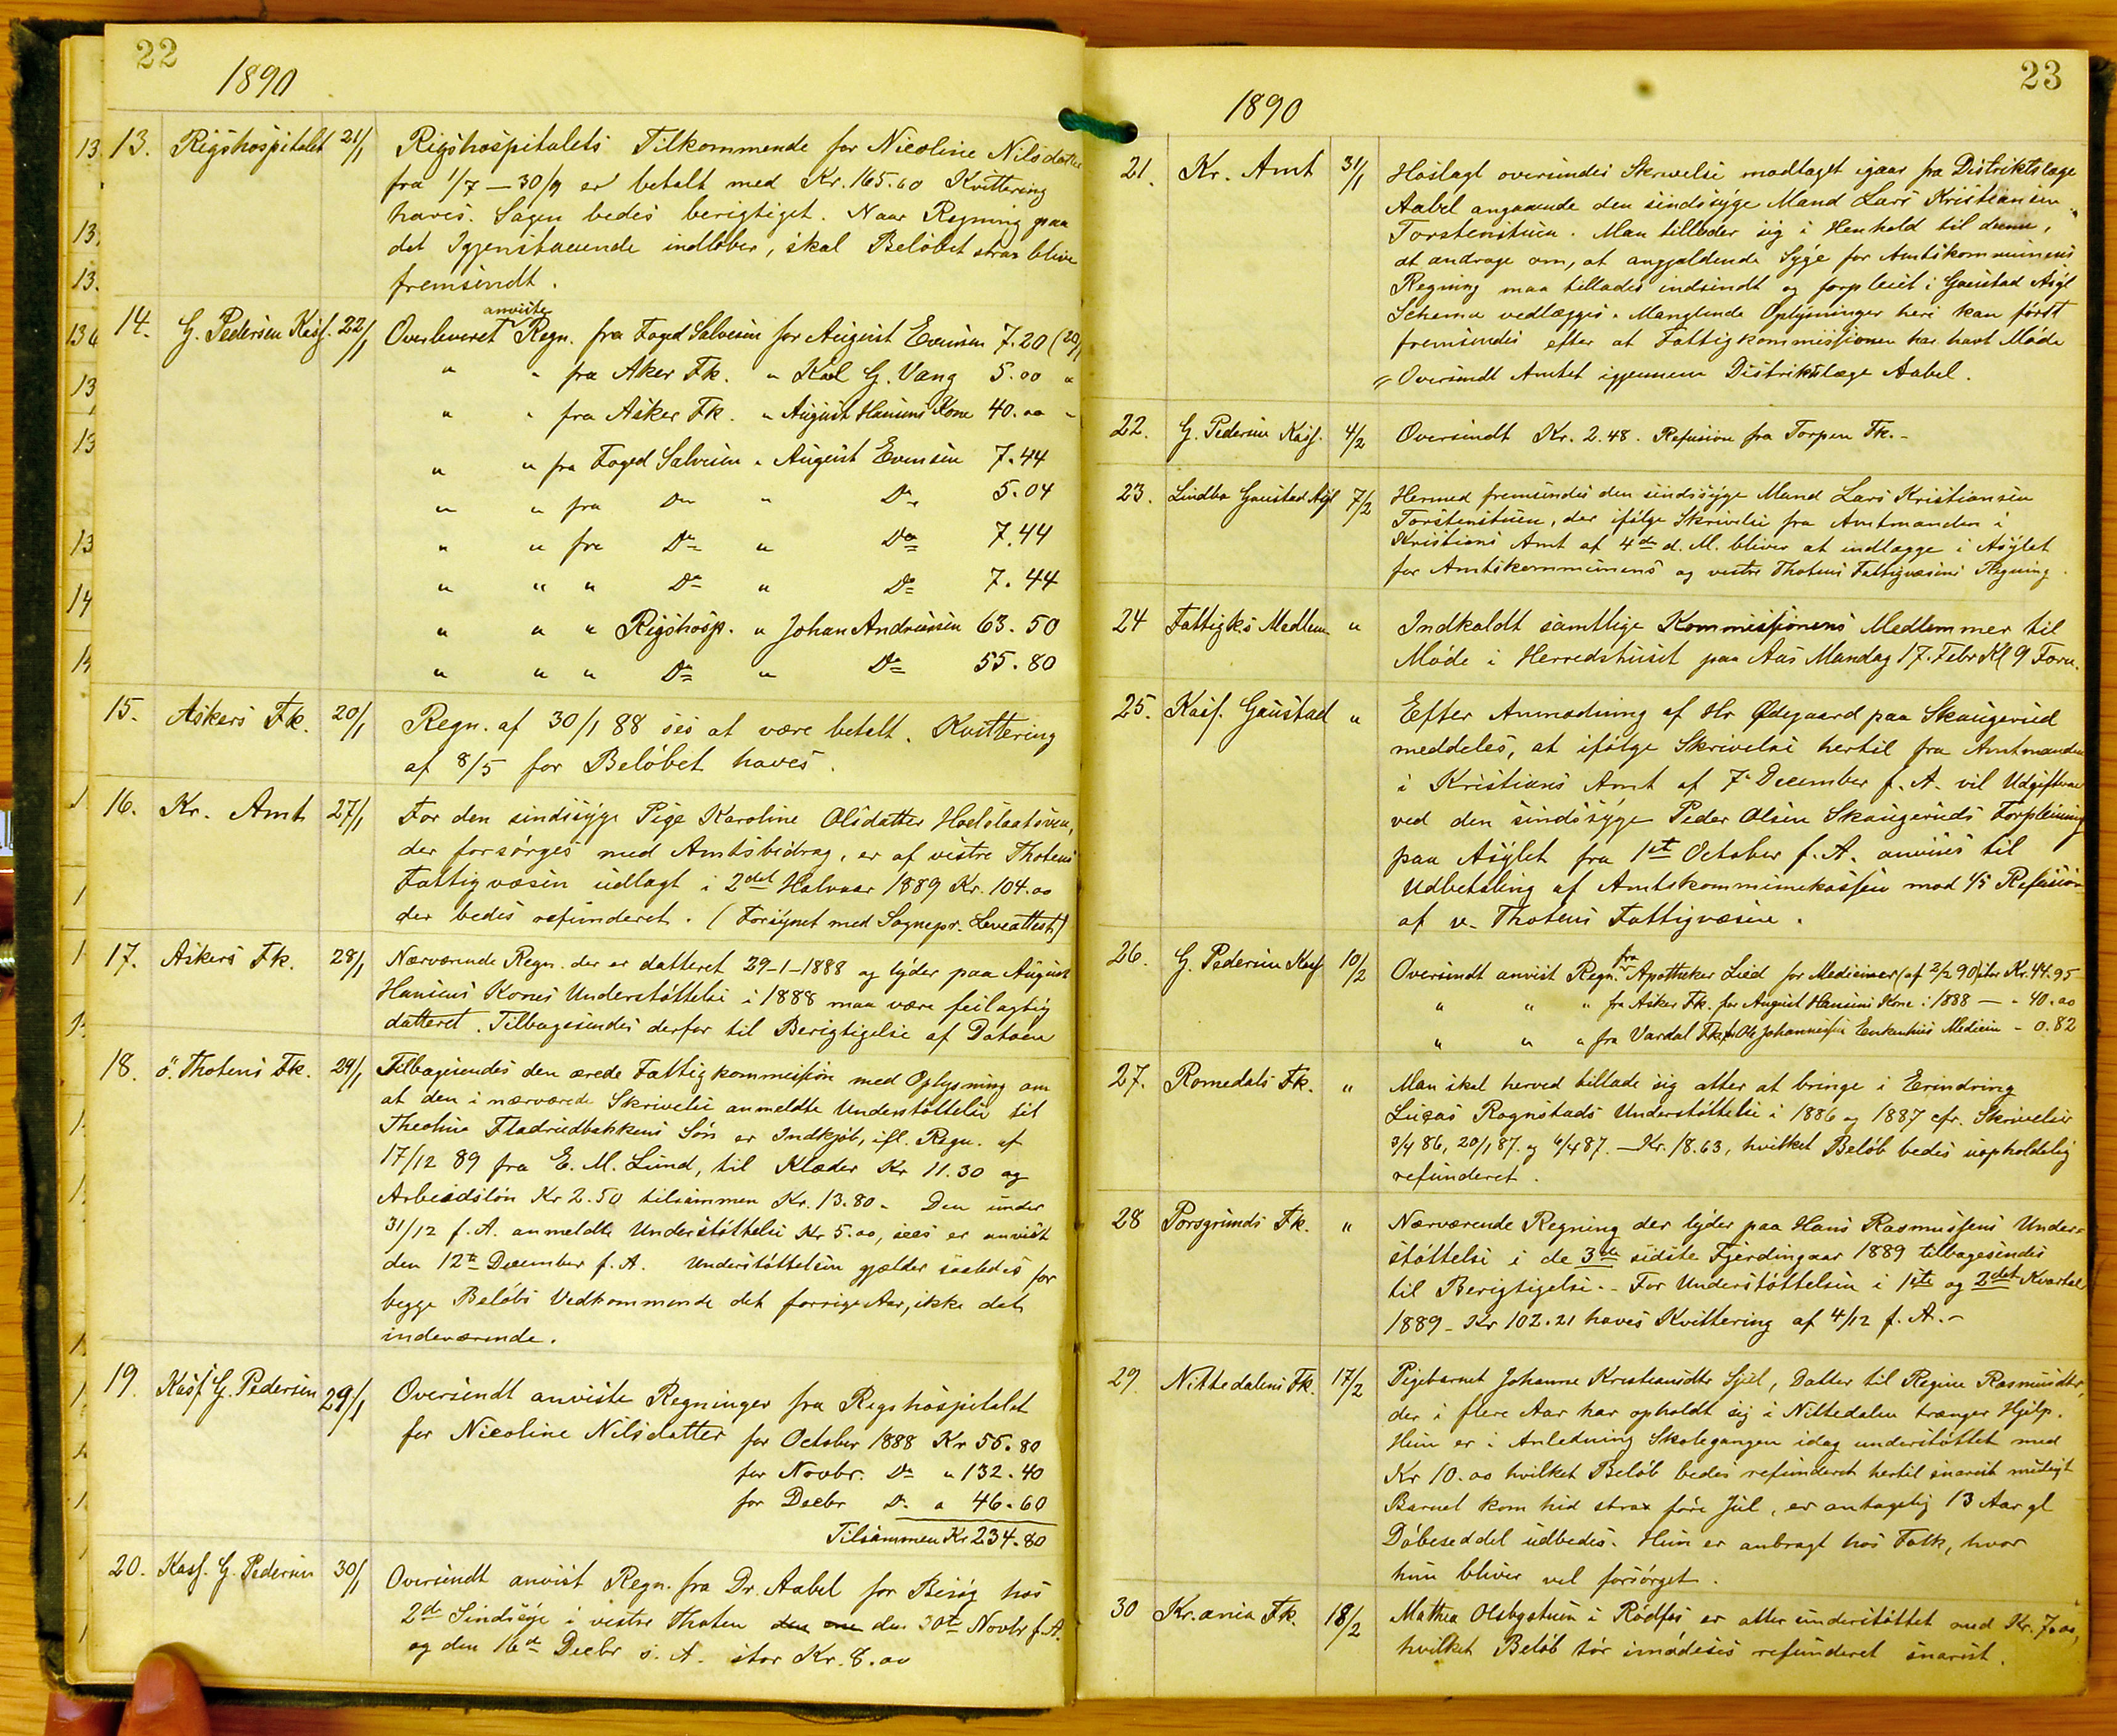 22
1890
13. Rigshospitalet 21/1 Rigshospitalets Tilkommende for Nicoline Nilsdatter
fra 1/7 — 30/9 er betalt med Kr. 165.60 Kvittering
haves. Sagen bedes berigtiget. Naar Regning paa
det Igjenstaaende indløber, skal Beløbet strax blive
fremsendt.
14. G. Pedersen Kass. 22/1 Overleveret anviste Regn. fra Foged Salvesen for August Evensen 7.20 (20/1
" " fra Aker Fk. " Karl G. Vang 5.00 "
" " fra Asker Fk. " August Hansens Kone 40.00 "
" " fra Foged Salvesen " August Evensen 7.44
" " fra Do " Do 5.04
" " fra Do " Do 7.44
" " " Do " Do 7.44
" " " Rigshosp. " Johan Andreassen 63.50
" " " Do " Do 55.80
15. Askers Fk. 20/1 Regn. af 30/1 88 ses at være betalt. Kvittering
af 8/5 for Beløbet haves.
16. Kr. Amt 27/1 For den sindssyge Pige Karoline Olsdatter
der forsørges med Amtsbidrag, er af vestre Thotens
Fattigvæsen udlagt i 2det Halvaar 1889 Kr. 104.00
der bedes refunderet. (Forsynet med Sognepr. Leveattest)
17. Askers Fk. 28/1 Nærværende Regn. der er datteret 29-1-1888 og lyder paa August
Hansens Kones Understøttelse i 1888 maa være feilagtig
datteret. Tilbagesendes derfor til Berigtigelse af Datoen
18. ö. Thotens Fk. 29/1 Tilbagesendes den ærede Fattigkommission med Oplysning om
at den i nærværede Skrivelse anmeldte Understøttelse til
Theoline Fladrudbakkens Søn er Indkjøb, ifl. Regn. af
17/12 89 fra E. M. Lund, til Klæder Kr 11.30 og
Arbeidsløn Kr 2.50 tilsammen Kr. 13.80. Den under
31/12 f. A. anmeldte Understøttelse Kr 5.00, sees er anvist
den 12te December f. A. Understøttelsen gjælder saaledes for
begge Beløbs Vedkommende det forrige Aar, ikke det
indeværende.
19. Kass. G. Pedersen 29/1 Oversendt anviste Regninger fra Rigshospitalet
for Nicoline Nilsdatter for October 1888 Kr 55.80
for Novbr. Do " 132.40
for Decbr Do " 46.60
Tilsammen Kr 234.80
20. Kass. G. Pedersen 30/1 Oversendt anvist Regn. fra Dr. Aabel for Besøg hos
2de Sindssyge i vestre Thoten den 30te Novbr f. A.
og den 16de Decbr s. A. stor Kr. 8.00
23
1890
21. Kr. Amt 31/1 Hoslagt oversendes Skrivelse modtaget igaar fra Distriktslæge
Aabel angaaende den sindssyge Mand Lars Kristiansen
Torstenstuen. Man tillader sig i Henhold til denne,
at andrage om, at angjældende Syge for Amtskommunens
Regning maa tillades indsendt og forpleiet i Gaustad Asyl
Schema vedlægges. Manglende Oplysninger heri kan først
fremsendes efter at Fattigkommissionen har havt Møde
Oversendt Amtet igjennem Distriktslæge Aabel.
22. G. Pedersen Kass. 4/2 Oversendt Kr. 2.48. Refusion fra Torpen Fk. -
23. Lindboe Gaustad Asyl 7/2 Hermed fremsendes den sindssyge Mand Lars Kristiansen
Torstenstuen, der ifølge Skrivelse fra Amtmanden i
Kristians Amt af 4de d. M. bliver at indlægge i Asylet
for Amtskommunens og vestre Thotens Fattigvæsens Regning.
24 Fattigks Medlem " Indkaldt samtlige Kommissionens Medlemmer til
Møde i Herredshuset paa Aas Mandag 17. Febr Kl 9 Form.
25. Kass. Gaustad " Efter Anmodning af Hr Ødegaard paa Skaugerud
meddeles, at ifølge Skrivelse hertil fra Amtmanden
i Kristians Amt af 7de December f. A. vil Udgifterne
ved den sindssyge Peder Olsen Skaugeruds Forpleining
paa Asylet fra 1st October f. A. anvises til
Udbetaling af Amtskommunekassen mod 4/5 Refusion
af v. Thotens Fattigvæsen.
26. G. Pedersen Kass 10/2 Oversendt anvist Regn. fra Apotheker Lied for Medicin (af 2/2 90) stor Kr. 44.95
" " " fra Asker Fk. for August Hansens Kone i 1888 — " 40.00
" " " fra Vardal Fk. f. Ole Johannessen Medicin - 0.82
27. Romedals Fk. " Man skal herved tillade sig atter at bringe i Erindring
Lucas Rognstads Understøttelse i 1886 og 1887 cfr. Skrivelser
3/4 86, 20/1 87. og 4/4 87. — Kr. 18.63, hvilket Beløb bedes uopholdelig
refunderet.
28 Porsgrunds Fk. " Nærværende Regning der lyder paa Hans Rasmussens Under-
støttelse i de 3de sidste Fjerdingaar 1889 tilbagesendes
til Berigtigelse. - For Understøttelsen i 1ste og 2det Kvartal
1889 - Kr 102.21 haves Kvittering af 4/12 f. A. -
29 Nittedalens Fk. 17/2 Pigebarnet Johanne Kristiansdtr Datter til Regine Rasmusdtr,
der i flere Aar har opholdt sig i Nittedalen trænger Hjelp.
Hun er i Anledning Skolegangen idag understøttet med
Kr 10.00 hvilket Beløb bedes refunderet hertil snarest muligt
Barnet kom hid strax före Jul, er antagelig 13 Aar gl
Døbeseddel udbedes. Hun er anbragt hos Folk, hvor
hun bliver vel forsørget.
30 Kr.ania Fk. 18/2 Mathea Olsbystuen i Rødfos er atter understøttet med Kr. 7.00,
hvilket Beløb tør imødeses refunderet snarest.